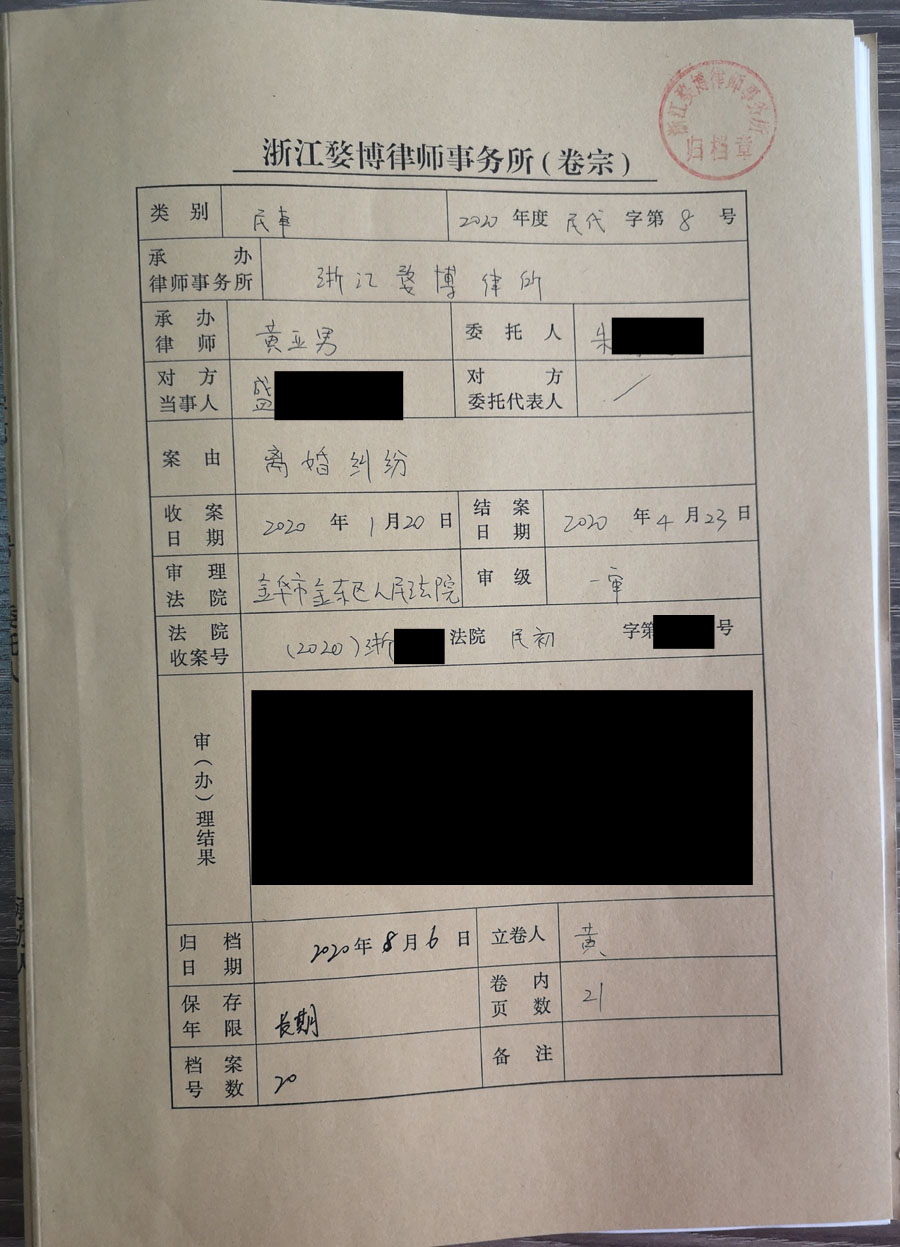 浙江婺博律师事务所
归档章
浙江婺博律师事务所(卷宗)
类别 民事 2020 年度 民代 字第 8 号
承办
律师事务所 浙江婺博律所
承办
律师 黄亚男 委托人 朱
对方
当事人 盛 对方
委托代表人 /
案由 离婚纠纷
收案
日期 2020 年 1 月 20 日 结案
日期 2020 年 4 月 23 日
审理
法院 金华市金东区人民法院 审级 一审
法院
收案号 (2020)浙 法院 民初 字第 号
审(办)理结果
归档
日期 2020 年 8 月 6 日 立卷人 黄
保存
年限 长期 卷内
页数 21
档案
号数 20 备注